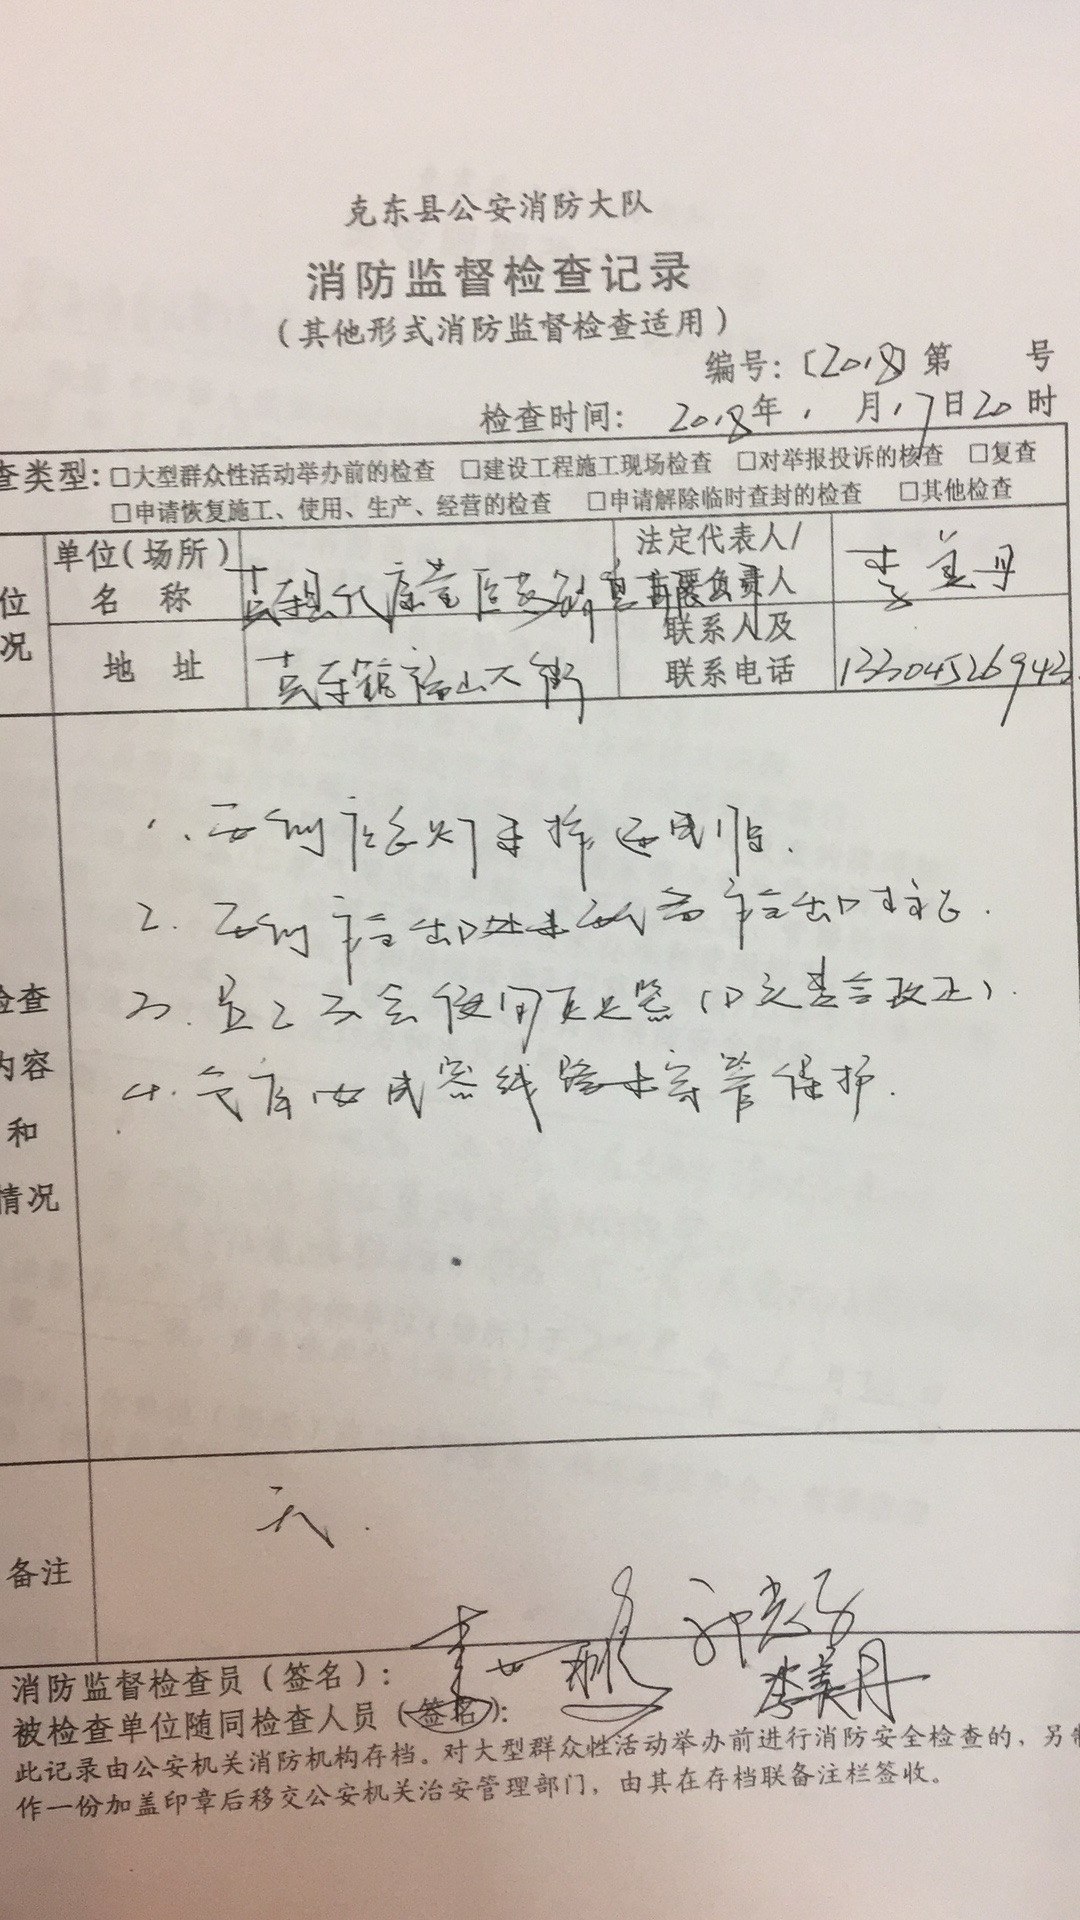 克东县公安消防大队
消防监督检查记录
（其他形式消防监督检查适用）
编号：〔2018〕第 号
检查时间： 2018年 1 月 17日20时
查类型：□大型群众性活动举办前的检查 □建设工程施工现场检查 □对举报投诉的核查 □复查
□申请恢复施工、使用、生产、经营的检查 □申请解除临时查封的检查 □其他检查
位
况
单位（场所）
名 称
法定代表人/
主要负责人
李美丹
地 址
克东镇 山大街
联系人及
联系电话
13304526943
检查
内容
和
情况
1.
2. 西侧 出口处未
3. 员工不会使用灭火器（ 改正）.
4. 仓库内 线路未穿管保护.
备注
无.
消防监督检查员（签名）：
被检查单位随同检查人员（签名）： 李美丹
此记录由公安机关消防机构存档。对大型群众性活动举办前进行消防安全检查的，另制
作一份加盖印章后移交公安机关治安管理部门，由其在存档联备注栏签收。